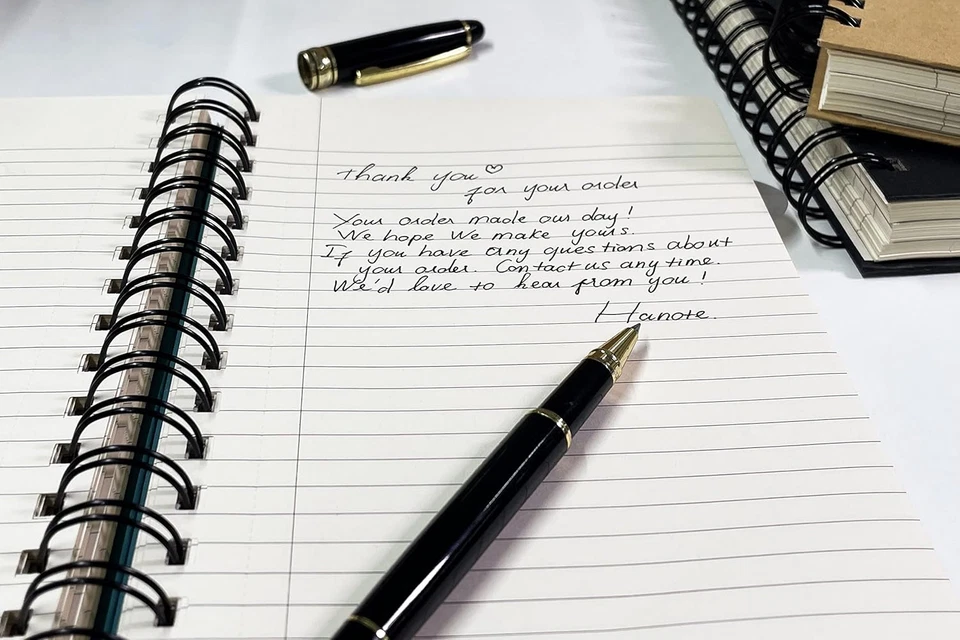 Thank you ♡
for your order
Your order made our day!
We hope We make yours.
If you have any questions about
your order. Contact us any time.
We'd love to hear from you!
Hanote.